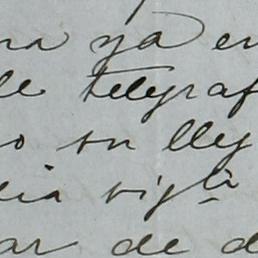 ra ya en
le telegraf
o su lleg
dia sigte
ar de d